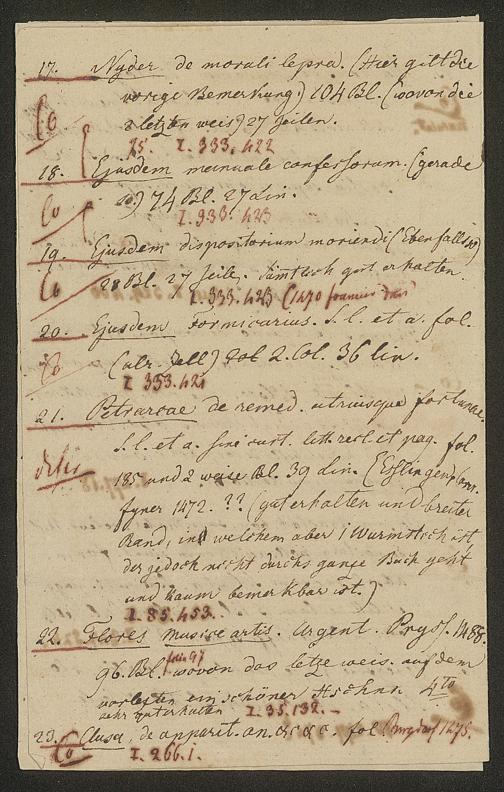 17. Nyder de morali lepra. (Hier gilt die
vorige Bemerkung) 104 Bl. (wovon die
2 letzten weis) 27 Zeilen.
I. 333. 422
18. Ejusdem manuale confessorum. (gerade
so) 74 Bl. 27 Lin.
I. 933. 423
19. Ejusdem dispositorium moriendi (Ebenfalls so)
28 Bl. 27 Zeile. Sämtlich gut erhalten.
I. 333. 423 (1470
20. Ejusdem Formicarius. S. l. et a. fol.
(Ulr. Zell) fol 2. Col. 36 lin.
I 333. 421
21. Petrarcae de remed. utriusque fortunae.
S. l. et a. sine cust. litt. rect. et pag. fol.
185 und 2 weise Bl. 39 Lin. (Esslingen Conr.
fyner 1472. ?? (gut erhalten und breiter
Rand, in welchem aber 1 Wurmstich ist
der jedoch nicht durchs ganze Buch geht
und kaum bemerkbar ist.)
I. 85. 453.
22. Flores musice artis. Argent. Pryss. 1488.
96. Bl. wovon das letze weis. auf dem
vorletzten ein schöner Hschnn 4to
sehr guterhalten I. 35. 132. -
23. Clusa, de apparit. an. &c &c. fol. Burgdorf 1475.
I. 266. 1.